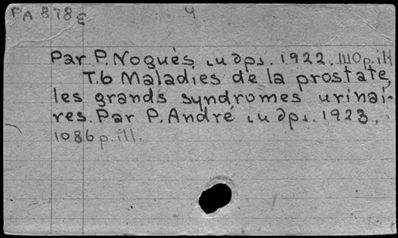 FA 878 4
Par P. Noguès, и др. 1922. 1110 p. ill
T.6 Maladies de la prostate,
les grands syndromes urinai-
res. Par P. André и др. 1923.
1086 p. ill.